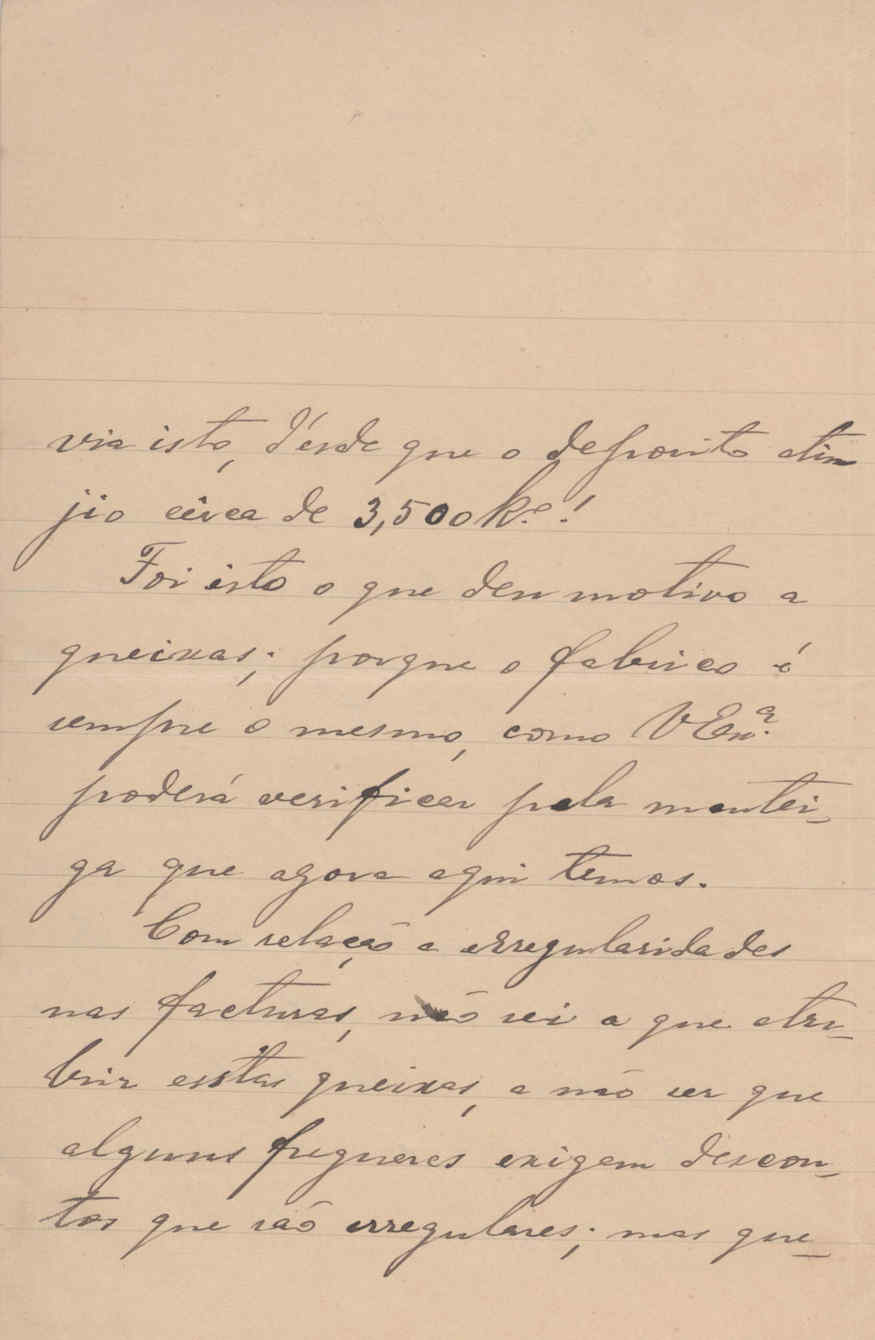 via isto, d'esde que o deposito atin
jio cêrca de 3,500 k.º!
Foi isto o que deu motivo a
queixas; porque o fabrico é
sempre o mesmo, como V Ex.ª
poderá verificar pela mantei-
ga que agora aqui temos.
Com relação a irregularidades
nas facturas, não sei a que atri-
buir esstas queixas, a não ser que
alguns freguezes exigem descon-
tos que são irregulares; mas que-